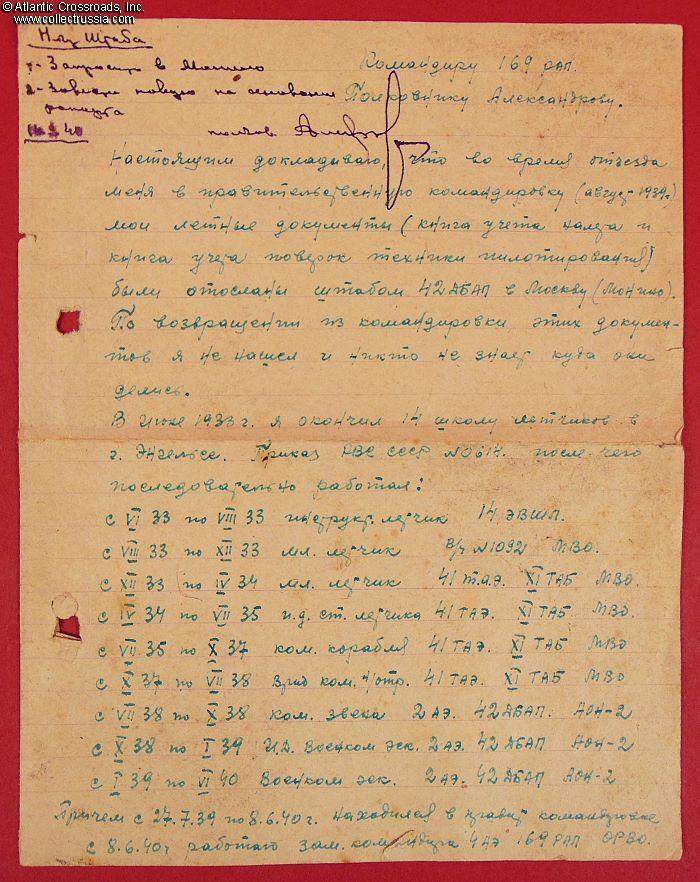 © Atlantic Crossroads, Inc.
www.collectrussia.com
Нач Штаба
1- Запросить в Монино
2- Завести новую на основании
рапорта
40
Командиру 169 РАП.
Полковнику Александрову.
Настоящим докладываю, что во время отъезда
меня в правительственную командировку (август 1939г)
мои летные документы (книга учета налета и
книга учета поверок техники пилотирования)
были отосланы штабом 42 ДБАП в Москву (Монино).
По возвращении из командировки этих докумен-
тов я не нашел и никто не знает куда они
делись.
В Июне 1933 г. я окончил 14 школу летчиков в
г. Энгельсе. Приказ РВС СССР №0614. после чего
последовательно работал:
с VI 33 по VIII 33 инструкт. летчик 14 ЭВШЛ.
с VIII 33 по XII 33 мл. летчик В/ч №1092 МВО.
с XII 33 по IV 34 мл. летчик 41 т.а.э. XI ТАБ МВО.
с IV 34 по VII 35 и.д. ст. летчика 41 ТАЭ. XI ТАБ МВО.
с VII 35 по X 37 ком. корабля 41 ТАЭ. XI ТАБ МВО
с X 37 по VII 38 Врид ком. отр. 41 ТАЭ. XI ТАБ МВО
с VII 38 по X 38 ком. звена 2 АЭ. 42 ДБАП. АОН-2
с X 38 по I 39 И.Д. Военком эск. 2 АЭ. 42 ДБАП АОН-2
с I 39 по VI 40 Военком эск. 2 АЭ. 42 ДБАП АОН-2
Причем с 27.7.39 по 8.6.40 г. находился в правит командировке
с 8.6.40 г работаю зам. командира 4 АЭ 169 РАП ОРВО.